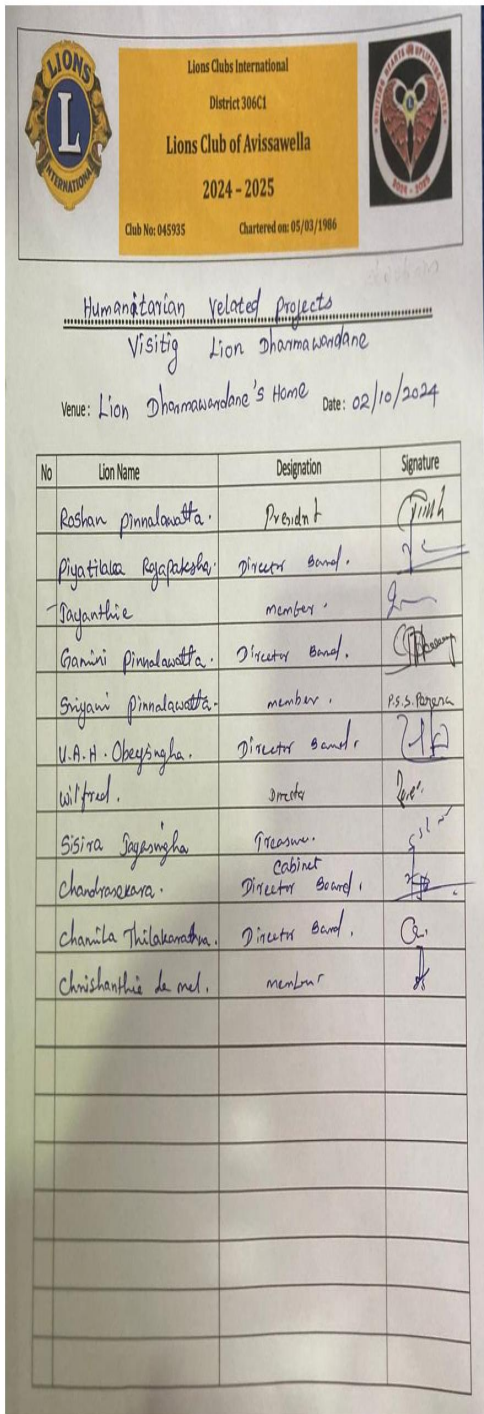 LIONS
L
INTERNATIONAL
Lions Clubs International
District 306C1
Lions Club of Avissawella
2024 - 2025
Club No: 045935 Chartered on: 05/03/1986
UNITING HEARTS UPLIFTING LIVES
2024 - 2025
Humanitarian related projects
Visitig Lion Dharmawardane
Venue: Lion Dharmawardane's Home Date: 02/10/2024
No Lion Name Designation Signature
Roshan Pinnalawatta. Presidnt
Piyatilaka Rajapaksha. Director Band.
Jayanthie member.
Gamini Pinnalawatta. Director Band.
Sriyani Pinnalawatta. member. P.S.S. Perera
U.A.H. Obeysingha. Director Band.
Wilfred. Director
Sisira Jayasingha Treasure.
Cabinet
Chandrasekara. Director Board.
Chamila Thilakarathna. Director Band.
Chrishanthie de mel. member